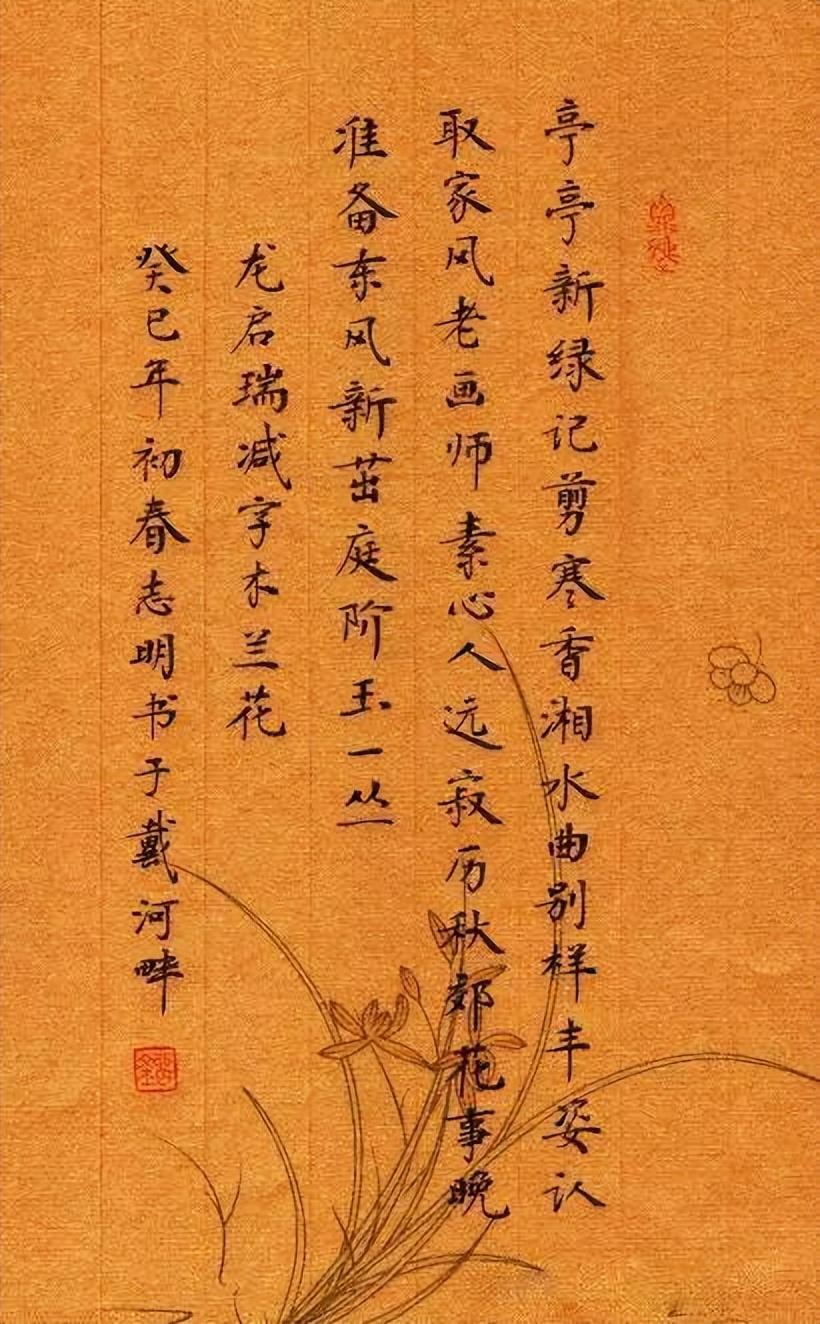 亭亭新绿记剪寒香湘水曲别样丰姿认
取家风老画师素心人远寂历秋郊花事晚
准备东风新茁庭阶玉一丛
龙启瑞减字木兰花
癸巳年初春志明书于戴河畔